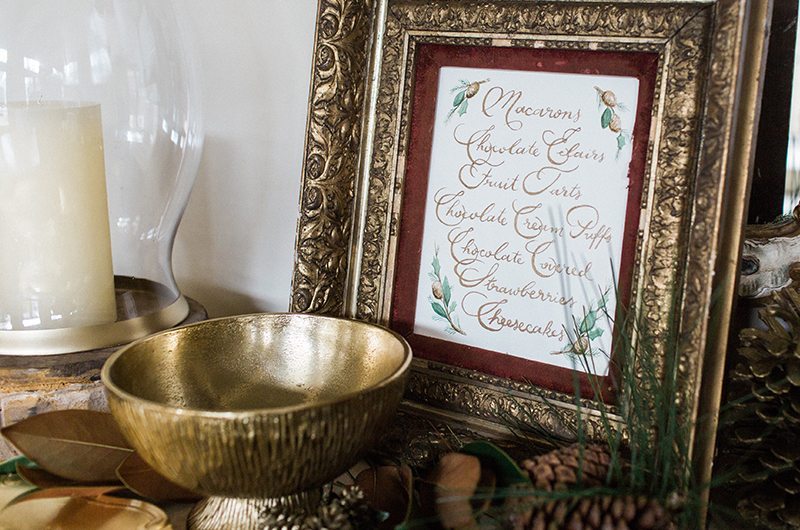 Macarons
Chocolate Eclairs
Fruit Tarts
Chocolate Cream Puffs
Chocolate Covered
Strawberries
Cheesecakes